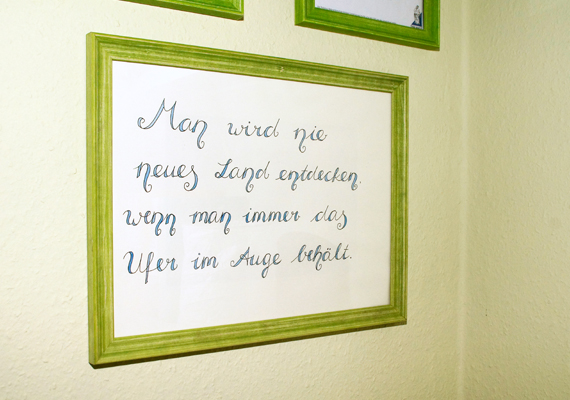 Man wird nie
neues Land entdecken,
wenn man immer das
Ufer im Auge behält.